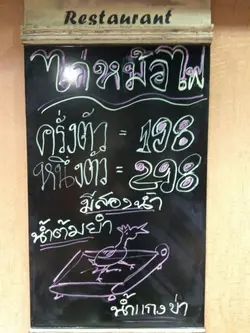 Restaurant
ไก่หม้อไฟ
ครึ่งตัว = 198
หนึ่งตัว = 298
มีสองน้ำ
น้ำต้มยำ
น้ำแกงป่า